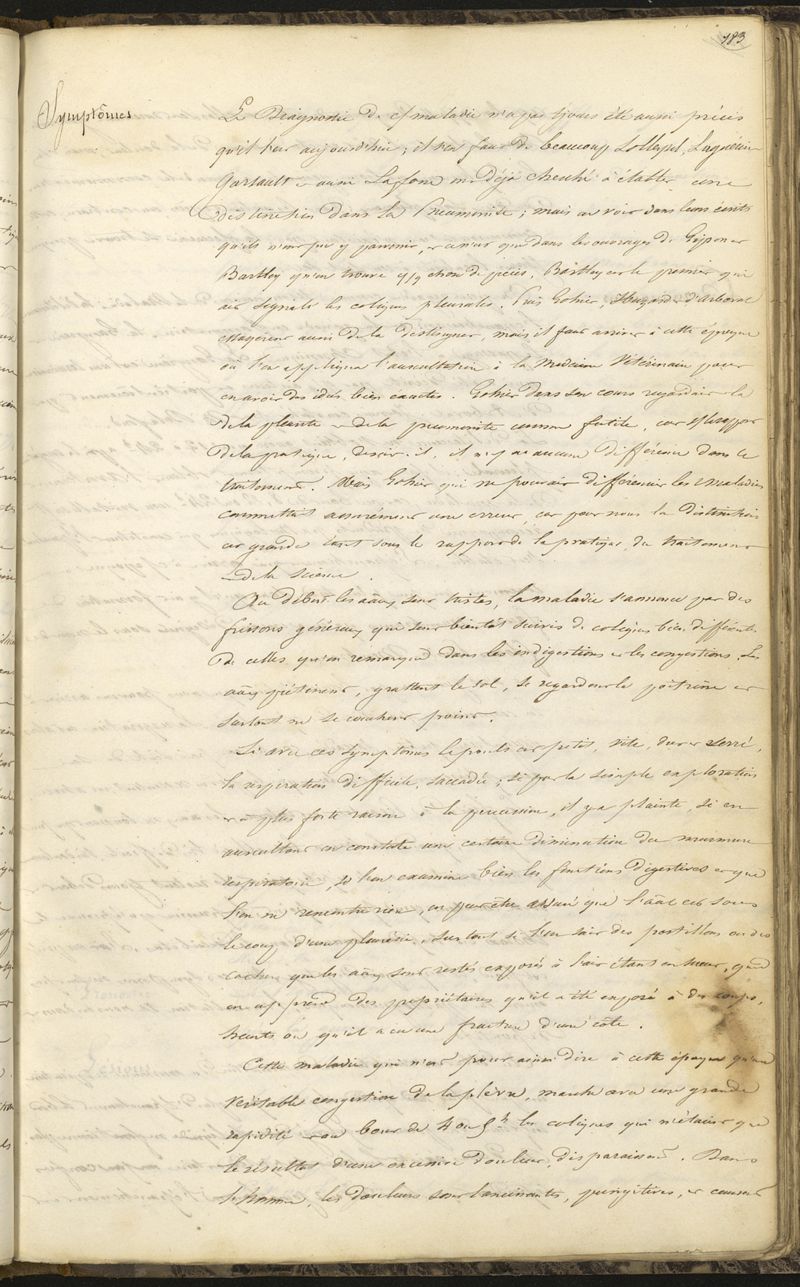 183
Symptômes
Le Diagnostic de c/ maladie n'a pas tjours été aussi précis
qu'il l'est aujourd'hui; il s'en faut de beaucoup
aussi Lafosse déjà cherché à établir une
distinction dans la Pneumonite; mais on voit dans leurs écrits
qu'ils n'ont pu y parvenir, et ce n'est que dans les ouvrages de
Bartley qu'on trouve q/q chose de précis, Bartley est le premier qui
ait signalé les coliques pleurales. Puis Gohier, Huzard d'Arboval
essayèrent aussi de la distinguer, mais il faut arriver à cette époque
où l'on appliqua l'auscultation à la Médecine Vétérinaire pour
en avoir des idées bien exactes. Gohier dans son cours regardait la
de la pleurite de la pneumonite comme futile, car s/ le rapport
de la pratique, disait-il, il n'y a aucune différence dans le
traitement. Mais Gohier qui ne pouvait différencier les maladies
commettait assurément une erreur, car pour nous la distinction
est grande tant sous le rapport de la pratique, du traitement
de la science.
Au début les aãux sont tristes, la maladie s'annonce par des
frissons généraux qui sont bientôt suivis de coliques bien différentes
de celles qu'on remarque dans les indigestions et les congestions. Les
aãux piétinent, grattent le sol, se regardent la poitrine et
surtout ne se couchent point.
Si avec ces symptômes le pouls est petit, vite, dur et serré,
la respiration difficile, saccadée; si par la simple exploration
et à plus forte raison à la percussion, il y a plainte, si en
auscultant on constate une certaine diminution du murmure
respiratoire, si l'on examine bien les fonctions digestives et que
l'on ne rencontre rien, on peut être assuré que l'aãl est sous
le coup d'une pleurésie, surtout si l'on sait des postillons ou des
cochers que les aãux sont restés exposés à l'air étant en sueur, quand
on apprend des propriétaires qu'il a été exposé à des coups,
heurts ou qu'il a eu une fracture d'une côte.
Cette maladie qui n'est pour ainsi dire à cette époque qu'une
véritable congestion de la plèvre, marche avec une grande
rapidité et au bout de 4 ou 5 h. les coliques qui n'étaient que
le résultat d'une excessive douleur, disparaissent. Dans
l'homme, les douleurs sont lancinantes, pungitives, et causent